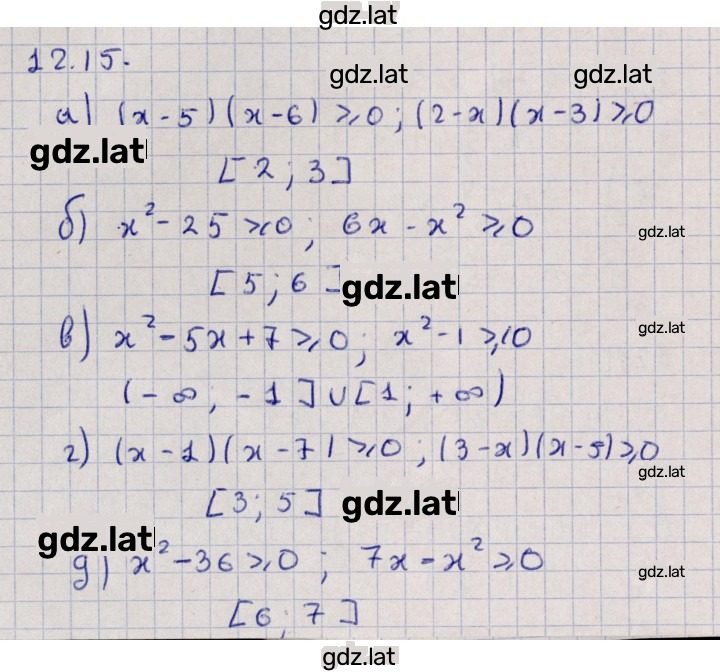 gdz.lat
12.15.
gdz.lat gdz.lat
а) (x-5)(x-6) ⩾0; (2-x)(x-3)⩾0
gdz.lat
[2; 3]
б) x²-25⩾0; 6x-x²⩾0
gdz.lat
[5; 6] gdz.lat
в) x²-5x+7⩾0; x²-1⩾0
gdz.lat
(-∞; -1]∪[1; +∞)
г) (x-1)(x-7)⩾0; (3-x)(x-5)⩾0
gdz.lat
[3; 5] gdz.lat
gdz.lat
д) x²-36⩾0; 7x-x²⩾0
gdz.lat
[6; 7]
gdz.lat